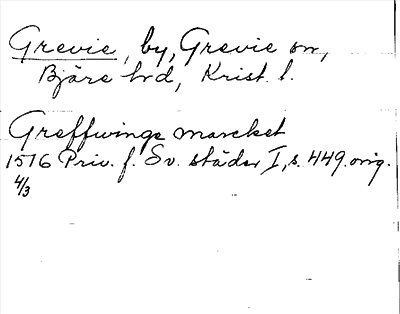 Grevie, by, Grevie sn,
Bjäre hd, Krist. l.
Greffwings marcket
1516 Priv. f. Sv. städer I, s. 449. orig.
4/3